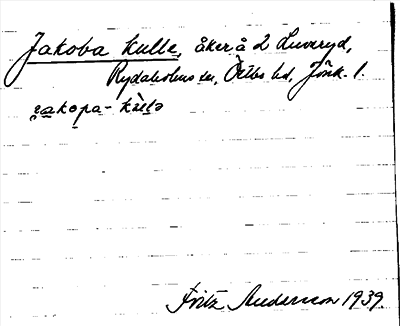 Jakoba kulle, åker å 2 Luveryd,
Rydaholms sn, Östbo hd, Jönk. l.
Fritz Andersson 1939.